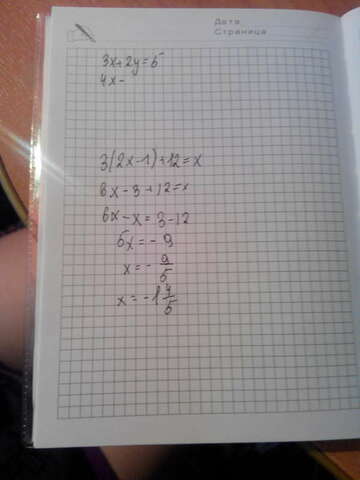 Дата
Страница
3x+2y=5
4x-
3(2x-1)+12=x
6x-3+12=x
6x-x=3-12
5x=-9
x=-9/5
x=-1 4/5